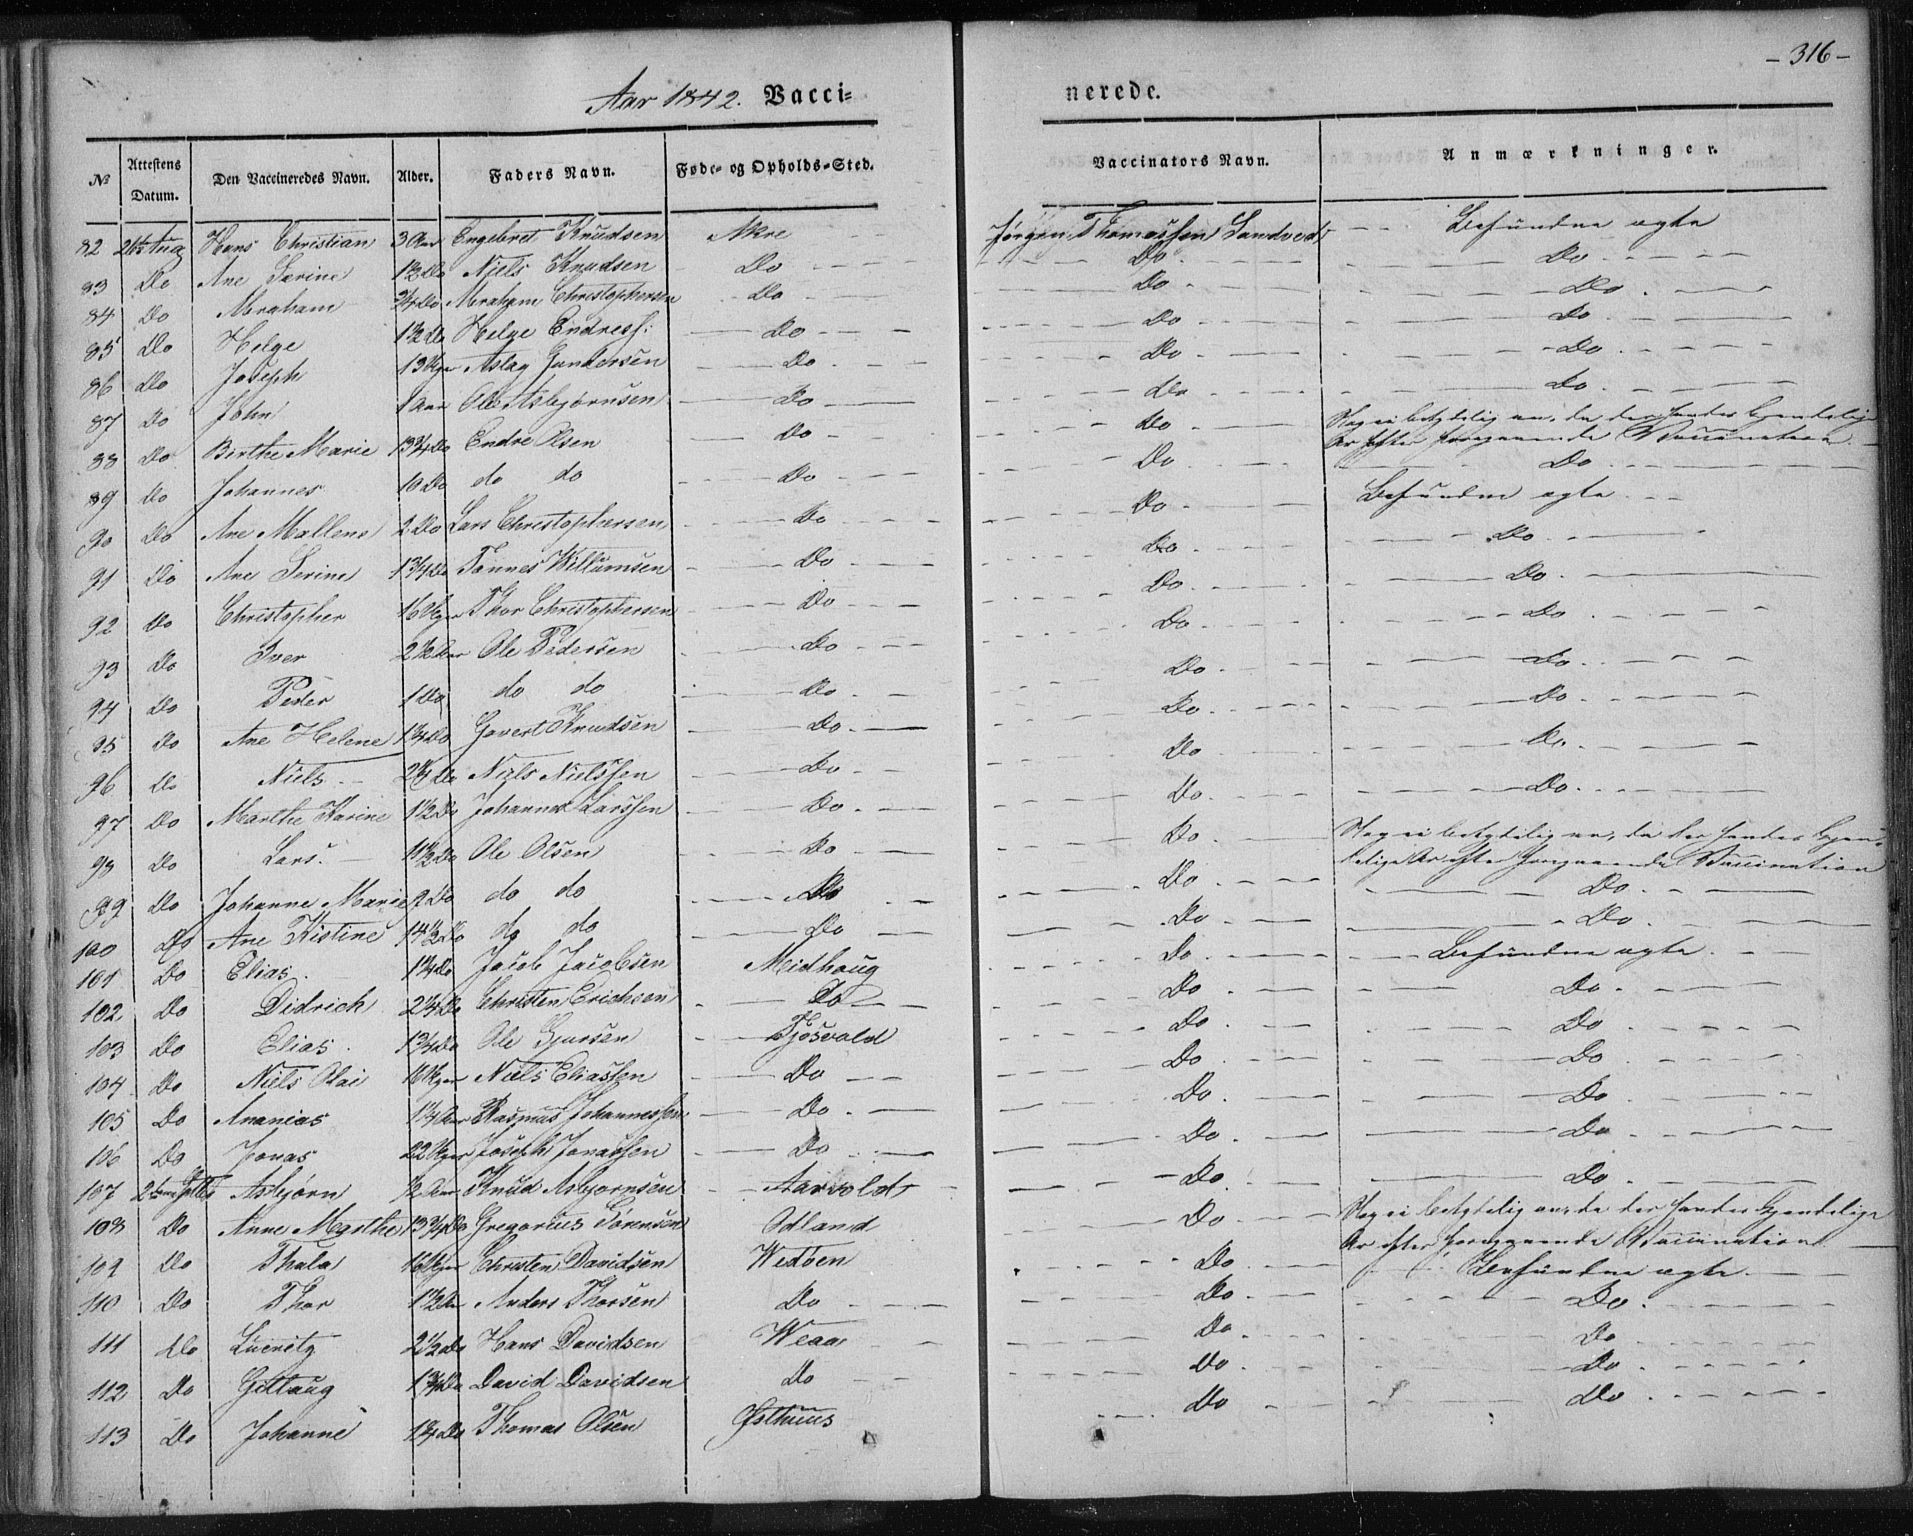 - 316 -
Aar 1842. Vacci= nerede.
№ | Attestens Datum. | Den Vaccineredes Navn. | Alder. | Faders Navn. | Føde- og Opholds-Sted. | Vaccinators Navn. | Anmærkninger.
82 Aug Hans Christian 3 Aar Engebret Knudsen Akre Jørgen Thomassen Sandved Befunden ægte
83 Do Ane Serine 1½ Do Niels Knudsen Do Do Do
84 Do Abraham ¾ Do Abraham Christophersen Do Do Do
85 Do Helge 1½ Do Helge Endress: Do Do Do
86 Do Joseph 13 Uger Aslag Gundersen Do Do Do
87 Do John 1 Aar Ole Asbjørnsen Do Do Do
88 Do Birthe Marie 13¾ Do Endre Olsen Do Do Nog ei betydelig an, da der fandes Kjendelige
Ar efter foregaaende Vaccination
89 Do Johannes 10 Do do do Do Do Do
90 Do Ane Mallene 2 Do Lars Christophersen Do Do Befunden ægte
91 Do Ane Serine 1¾ Do Tønnes Willumsen Do Do Do
92 Do Christopher 16 Uger Thor Christophersen Do Do Do
93 Do Iver 2½ Aar Ole Pedersen Do Do Do
94 Do Peder 1 Do do do Do Do Do
95 Do Ane Helene 1¾ Do Govert Knudsen Do Do Do
96 Do Niels 2¼ Do Niels Nielssen Do Do Do
97 Do Marthe Karine 1½ Do Johannes Larssen Do Do Do
98 Do Lars 11½ Do Ole Olsen Do Do Nog ei betydelig an, da der fandes Kjen-
delige Ar efter foregaaende Vaccination
99 Do Johanne Marie 9 Do do do Do Do Do
100 Do Ane Kistine 14½ Do do do Do Do Do
101 Do Elias 1¼ Do Jacob Jacobsen Midhoug Do Befunden ægte
102 Do Didrich 2¼ Do Christen Erichsen Do Do Do
103 Do Elias 1¾ Do Ole Gjursen Tjøsvold Do Do
104 Do Niels Olai 16 Uger Niels Eliassen Do Do Do
105 Do Ananias 1¼ Aar Rasmus Johannessen Do Do Do
106 Do Jonas 22 Uger Joseph Jonassen Do Do Do
107 Asbjørn ½ Aar Knud Asbjørnsen Aarvold Do Do
108 Do Anne Marthe 13¾ Do Gregorius Sørensen Odland Do Nog ei betydelig an, da der fandes Kjendelige
Ar efter foregaaende Vaccination
109 Do Thala 16 Uger Christen Davidsen Wedøen Do Befunden ægte
110 Do Thor 1½ Aar Anders Thorsen Do Do Do
111 Do 2½ Do Hans Davidsen Weaa Do Do
112 Do Gittaug 1¾ Do David Davidsen Do Do Do
113 Do Johanne 1¼ Do Thomas Olsen Østhuus Do Do